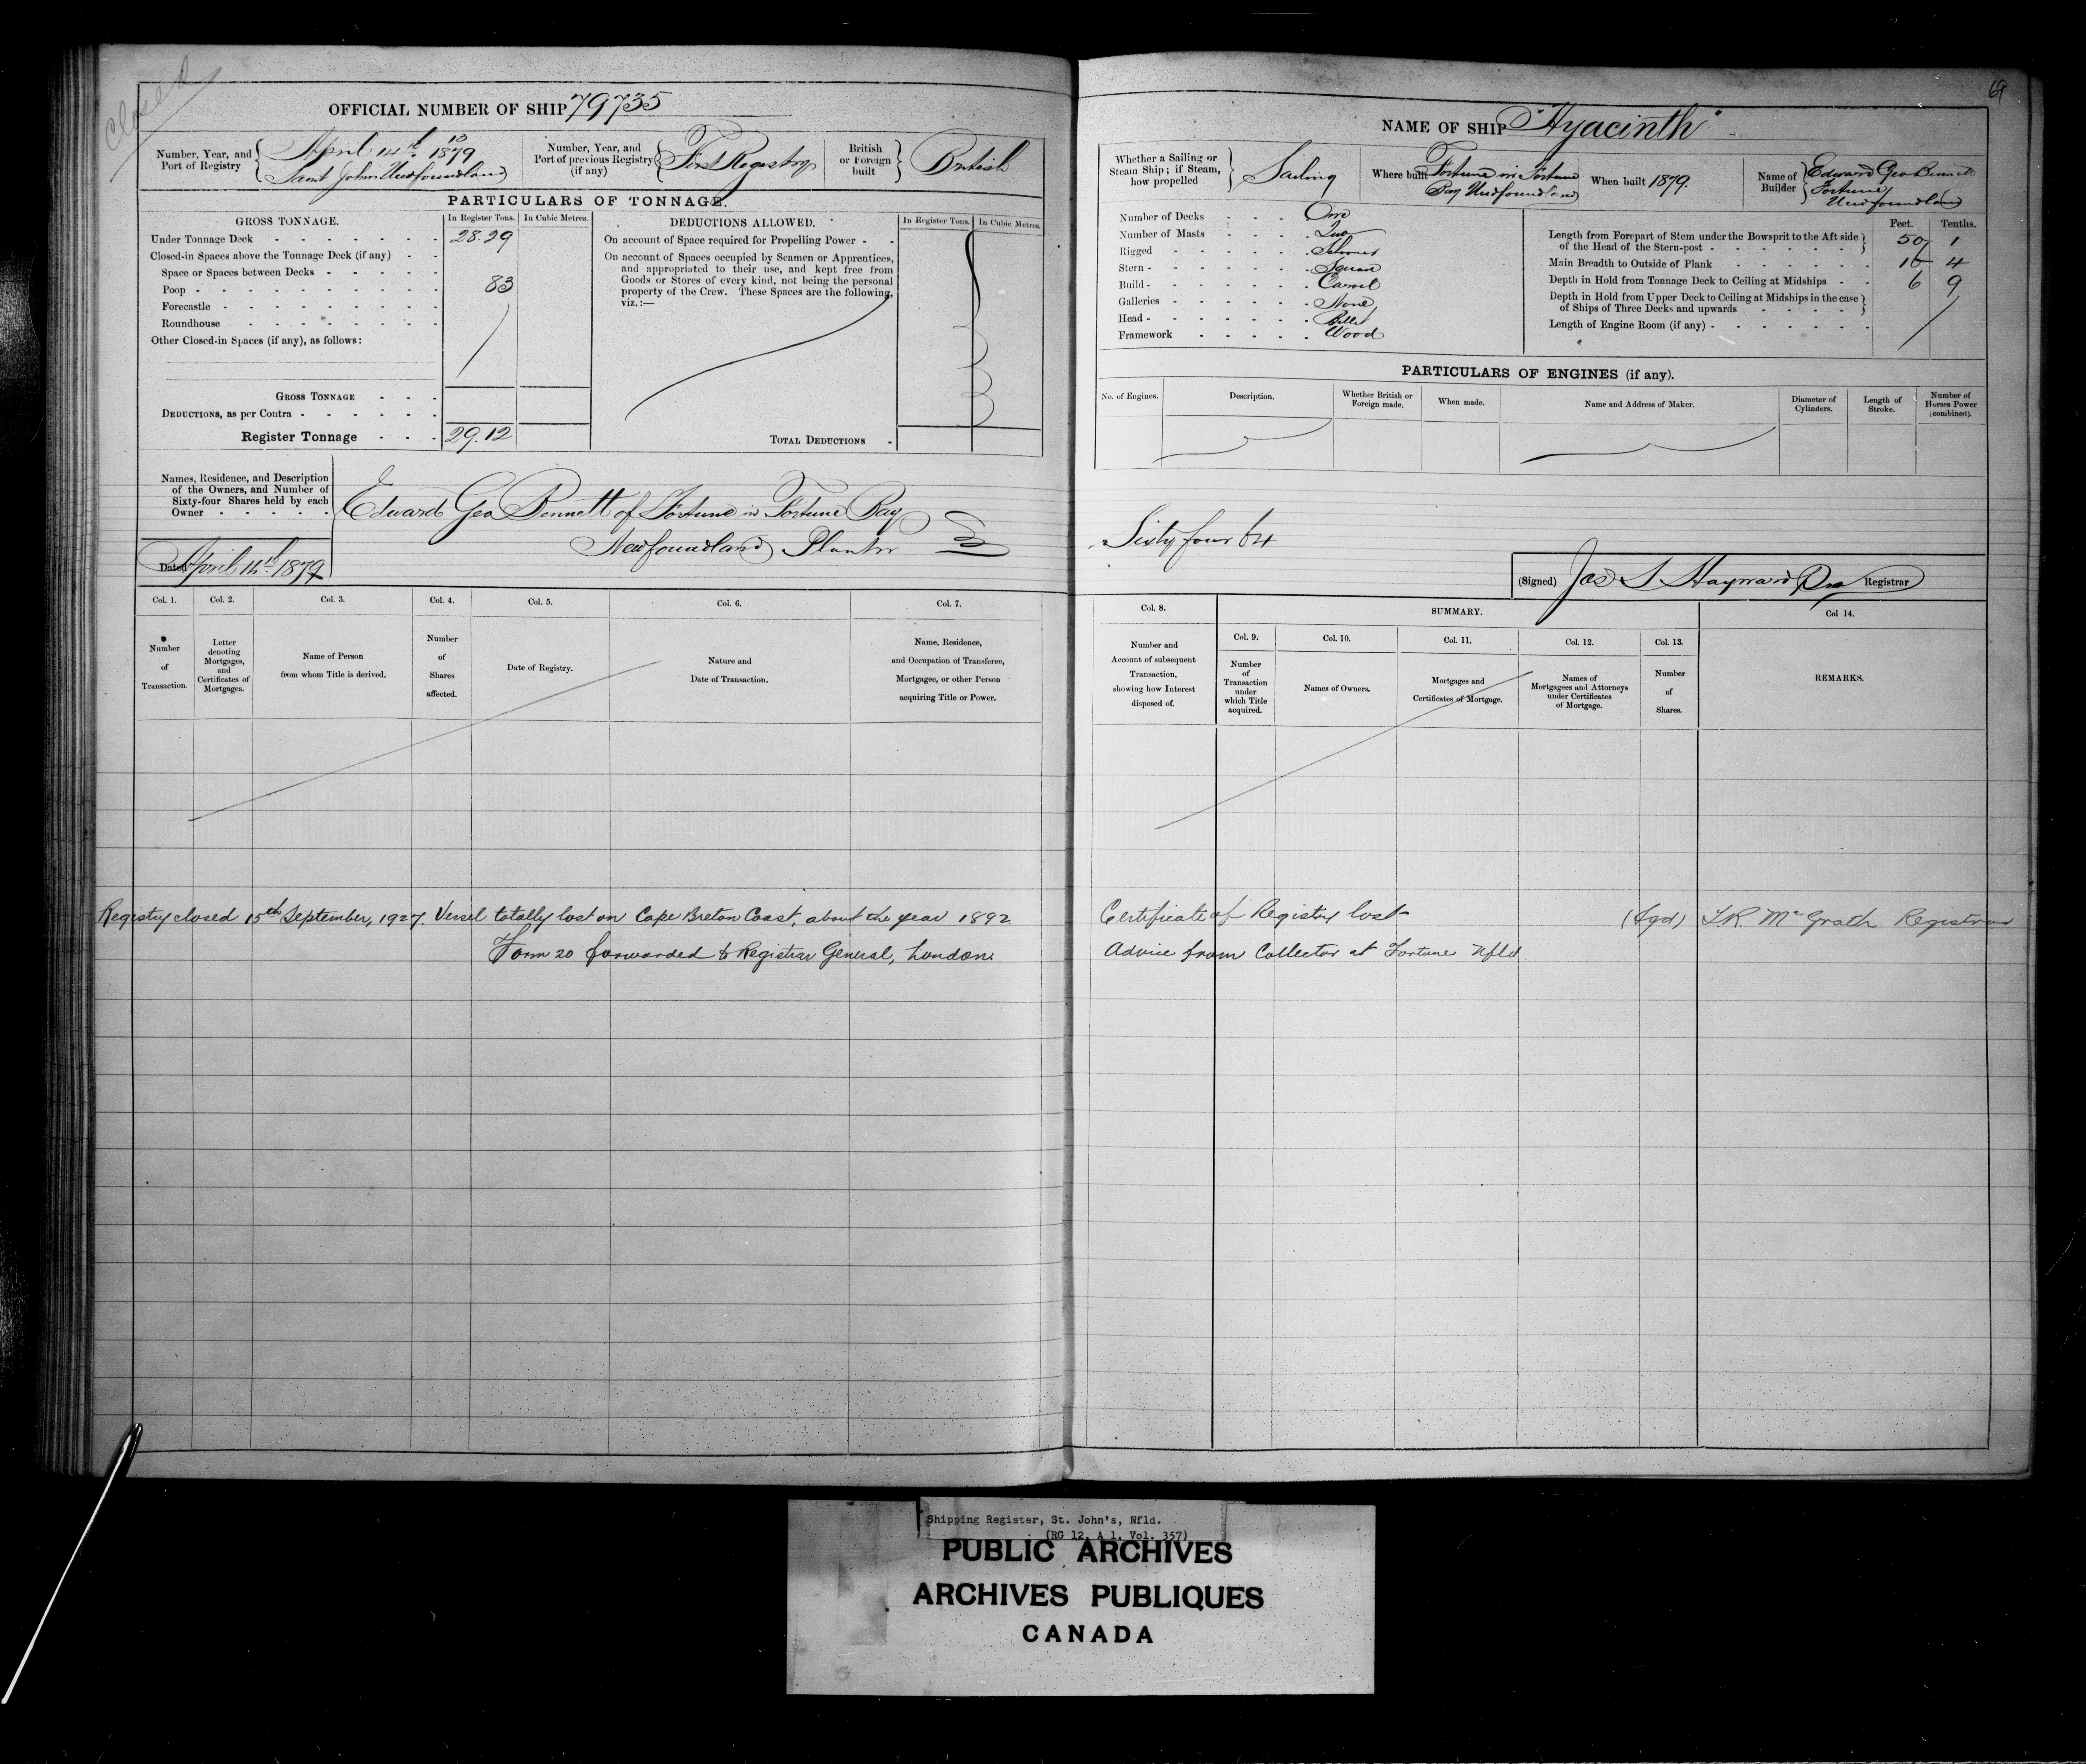 Closed
OFFICIAL NUMBER OF SHIP 79735
Number, Year, and Port of Registry
April 14th 1879
Saint Johns Newfoundland
Number, Year, and Port of previous Registry (if any)
First Registry
British or Foreign built
British
PARTICULARS OF TONNAGE.
GROSS TONNAGE.
In Register Tons.
In Cubic Metres.
Under Tonnage Deck 28.29
Closed-in Spaces above the Tonnage Deck (if any)
Space or Spaces between Decks
Poop 83
Forecastle
Roundhouse
Other Closed-in Spaces (if any), as follows:
GROSS TONNAGE
DEDUCTIONS, as per Contra
Register Tonnage 29.12
DEDUCTIONS ALLOWED.
In Register Tons.
In Cubic Metres.
On account of Space required for Propelling Power
On account of Spaces occupied by Seamen or Apprentices,
and appropriated to their use, and kept free from
Goods or Stores of every kind, not being the personal
property of the Crew. These Spaces are the following,
viz.:—
TOTAL DEDUCTIONS
Names, Residence, and Description
of the Owners, and Number of
Sixty-four Shares held by each
Owner
Edward Geo Bennett of Fortune in Fortune Bay
Newfoundland Planter
Dated April 14th 1879
Col. 1.
Number of Transaction.
Col. 2.
Letter denoting Mortgages, and Certificates of Mortgages.
Col. 3.
Name of Person from whom Title is derived.
Col. 4.
Number of Shares affected.
Col. 5.
Date of Registry.
Col. 6.
Nature and Date of Transaction.
Col. 7.
Name, Residence, and Occupation of Transferee, Mortgagee, or other Person acquiring Title or Power.
Registry closed 15th September, 1927. Vessel totally lost on Cape Breton Coast, about the year 1892
Form 20 forwarded to Registrar General, London.
69
NAME OF SHIP "Hyacinth"
Whether a Sailing or Steam Ship; if Steam, how propelled
Sailing
Where built
Fortune in Fortune
Bay Newfoundland
When built 1879.
Name of Builder
Edward Geo Bennett
Fortune
Newfoundland
Number of Decks One
Number of Masts Two
Rigged Schooner
Stern Square
Build Carvel
Galleries None
Head Billet
Framework Wood
Feet. Tenths.
Length from Forepart of Stem under the Bowsprit to the Aft side
of the Head of the Stern-post 50 1
Main Breadth to Outside of Plank 16 4
Depth in Hold from Tonnage Deck to Ceiling at Midships 6 9
Depth in Hold from Upper Deck to Ceiling at Midships in the case
of Ships of Three Decks and upwards
Length of Engine Room (if any)
PARTICULARS OF ENGINES (if any).
No. of Engines.
Description.
Whether British or Foreign made.
When made.
Name and Address of Maker.
Diameter of Cylinders.
Length of Stroke.
Number of Horses Power (combined).
Sixty four 64
(Signed) Jas S Hayward Registrar
Col. 8.
Number and Account of subsequent Transaction, showing how Interest disposed of.
SUMMARY.
Col. 9.
Number of Transaction under which Title acquired.
Col. 10.
Names of Owners.
Col. 11.
Mortgages and Certificates of Mortgage.
Col. 12.
Names of Mortgagees and Attorneys under Certificates of Mortgage.
Col. 13.
Number of Shares.
Col 14.
REMARKS.
Certificate of Registry lost- (Sgd) T.R. McGrath Registrar
Advice from Collector at Fortune Nfld.
Shipping Register, St. John's, Nfld.
(RG 12, A 1, Vol. 357)
PUBLIC ARCHIVES
ARCHIVES PUBLIQUES
CANADA